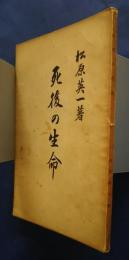 松原英一著
死後の生命